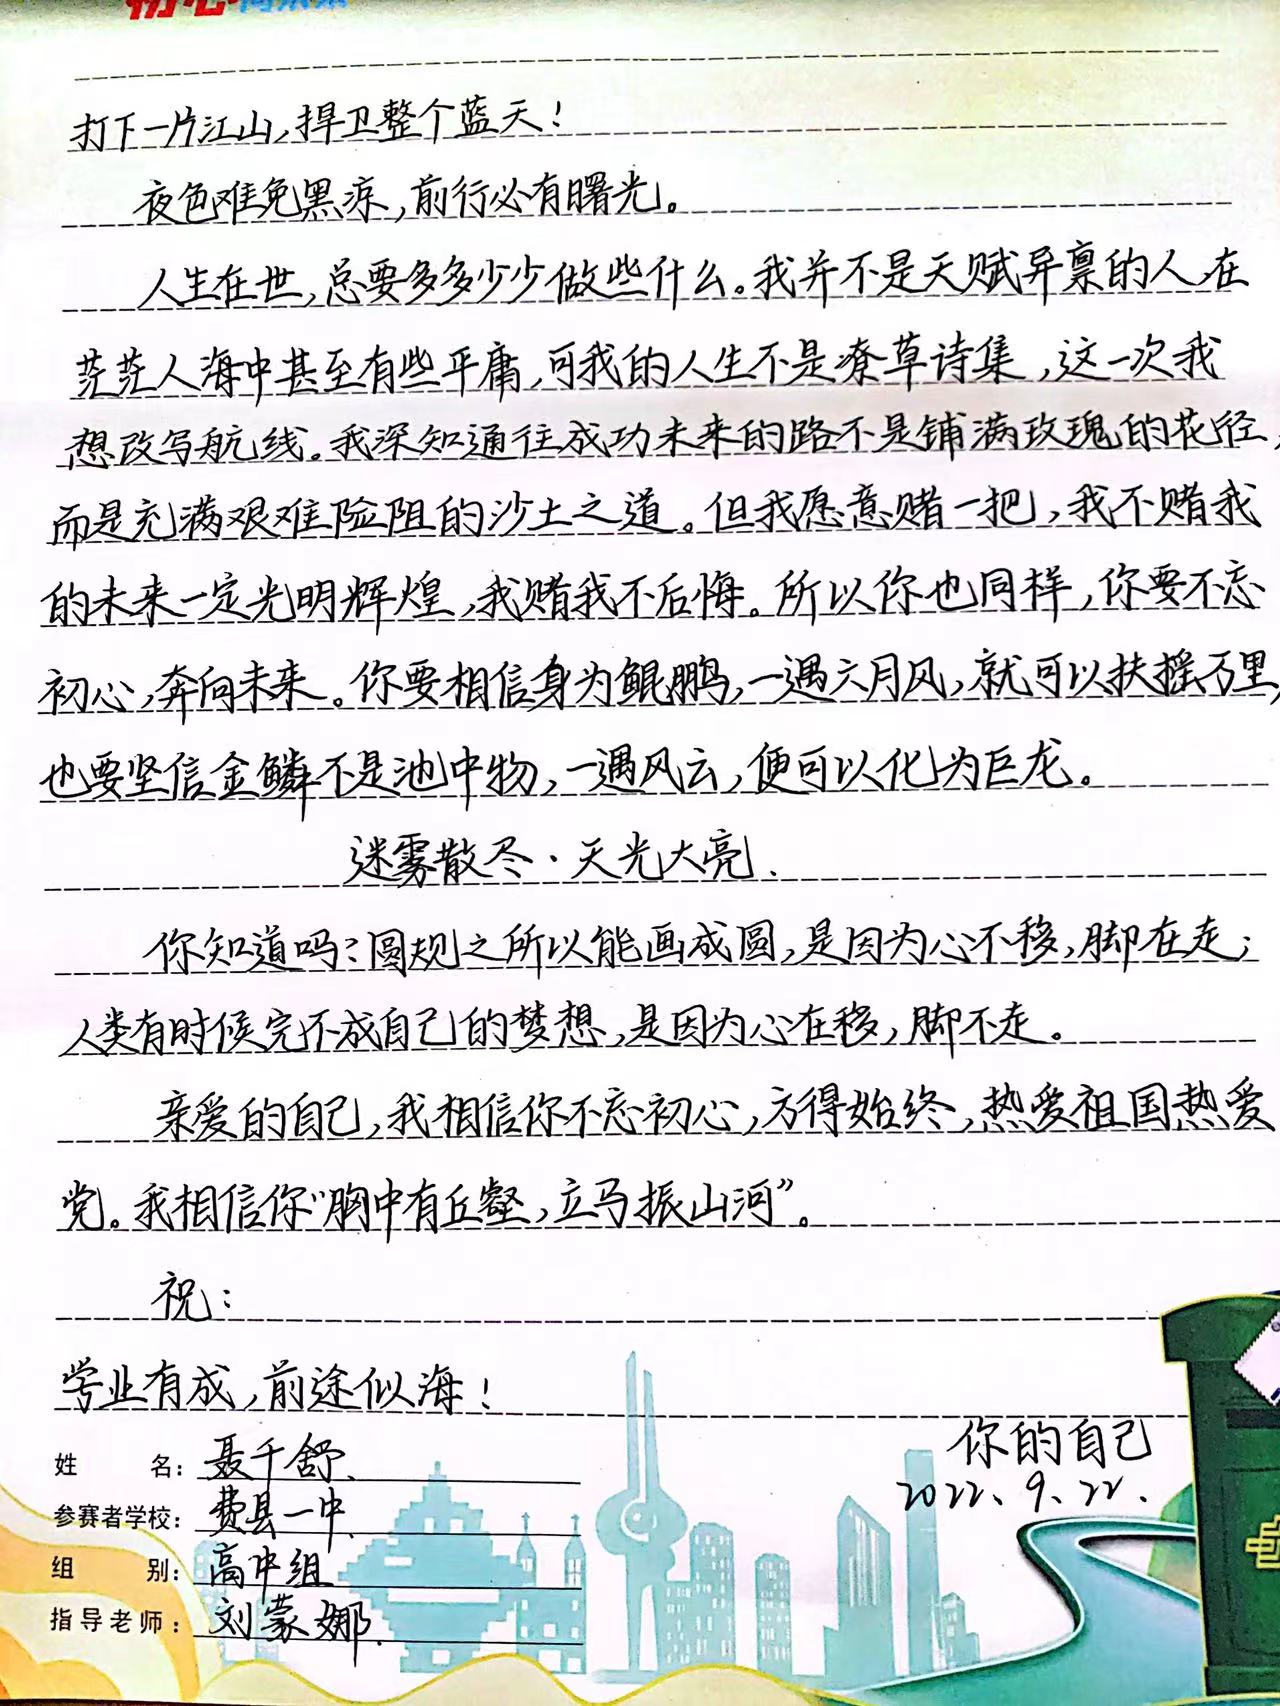 打下一片江山,捍卫整个蓝天!
夜色难免黑凉,前行必有曙光。
人生在世,总要多多少少做些什么。我并不是天赋异禀的人,在
茫茫人海中甚至有些平庸,可我的人生不是潦草诗集,这一次我
想改写航线。我深知通往成功未来的路不是铺满玫瑰的花径,
而是充满艰难险阻的沙土之道。但我愿意赌一把,我不赌我
的未来一定光明辉煌,我赌我不后悔。所以你也同样,你要不忘
初心,奔向未来。你要相信身为鲲鹏,一遇六月风,就可以扶摇万里,
也要坚信金鳞不是池中物,一遇风云,便可以化为巨龙。
迷雾散尽·天光大亮.
你知道吗?圆规之所以能画成圆,是因为心不移,脚在走;
人类有时候完不成自己的梦想,是因为心在移,脚不走。
亲爱的自己,我相信你不忘初心,方得始终,热爱祖国热爱
党。我相信你“胸中有丘壑,立马振山河”。
祝:
学业有成,前途似海!
你的自己
2022、9、22.
姓 名:聂千舒.
参赛者学校:费县一中.
组 别:高中组
指导老师:刘蒙娜.